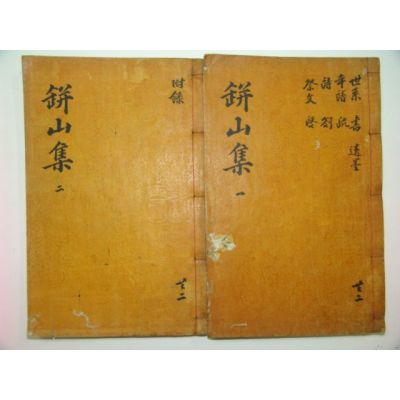 世系 書 遺墨
年譜 疏
詩 劄
祭文 啓
鉼山集 一
共二
附錄
鉼山集 二
共二